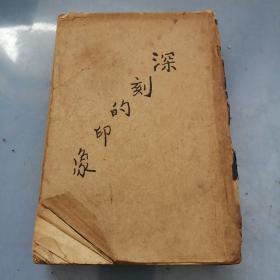 深刻的印象